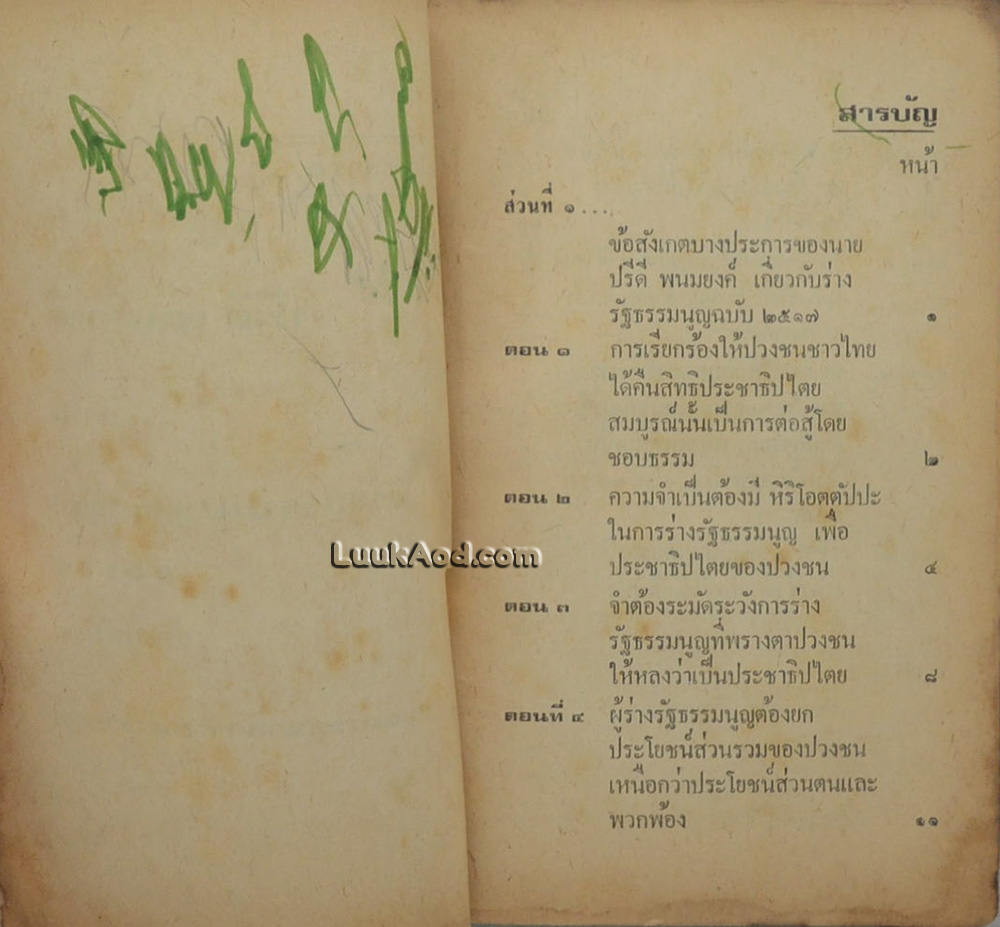 สารบัญ
หน้า
ส่วนที่ ๑ ....
ข้อสังเกตบางประการของนาย
ปรีดี พนมยงค์ เกี่ยวกับร่าง
รัฐธรรมนูญฉบับ ๒๕๑๗ ๑
ตอน ๑ การเรียกร้องให้ปวงชนชาวไทย
ได้คืนสิทธิประชาธิปไตย
สมบูรณ์นั้นเป็นการต่อสู้โดย
ชอบธรรม ๒
ตอน ๒ ความจำเป็นต้องมี หิริโอตตัปปะ
ในการร่างรัฐธรรมนูญ เพื่อ
LuukAod.com
ประชาธิปไตยของปวงชน ๔
ตอน ๓ จำต้องระมัดระวังการร่าง
รัฐธรรมนูญที่พรางตาปวงชน
ให้หลงว่าเป็นประชาธิปไตย ๘
ตอนที่ ๔ ผู้ร่างรัฐธรรมนูญต้องยก
ประโยชน์ส่วนรวมของปวงชน
เหนือกว่าประโยชน์ส่วนตนและ
พวกพ้อง ๑๑